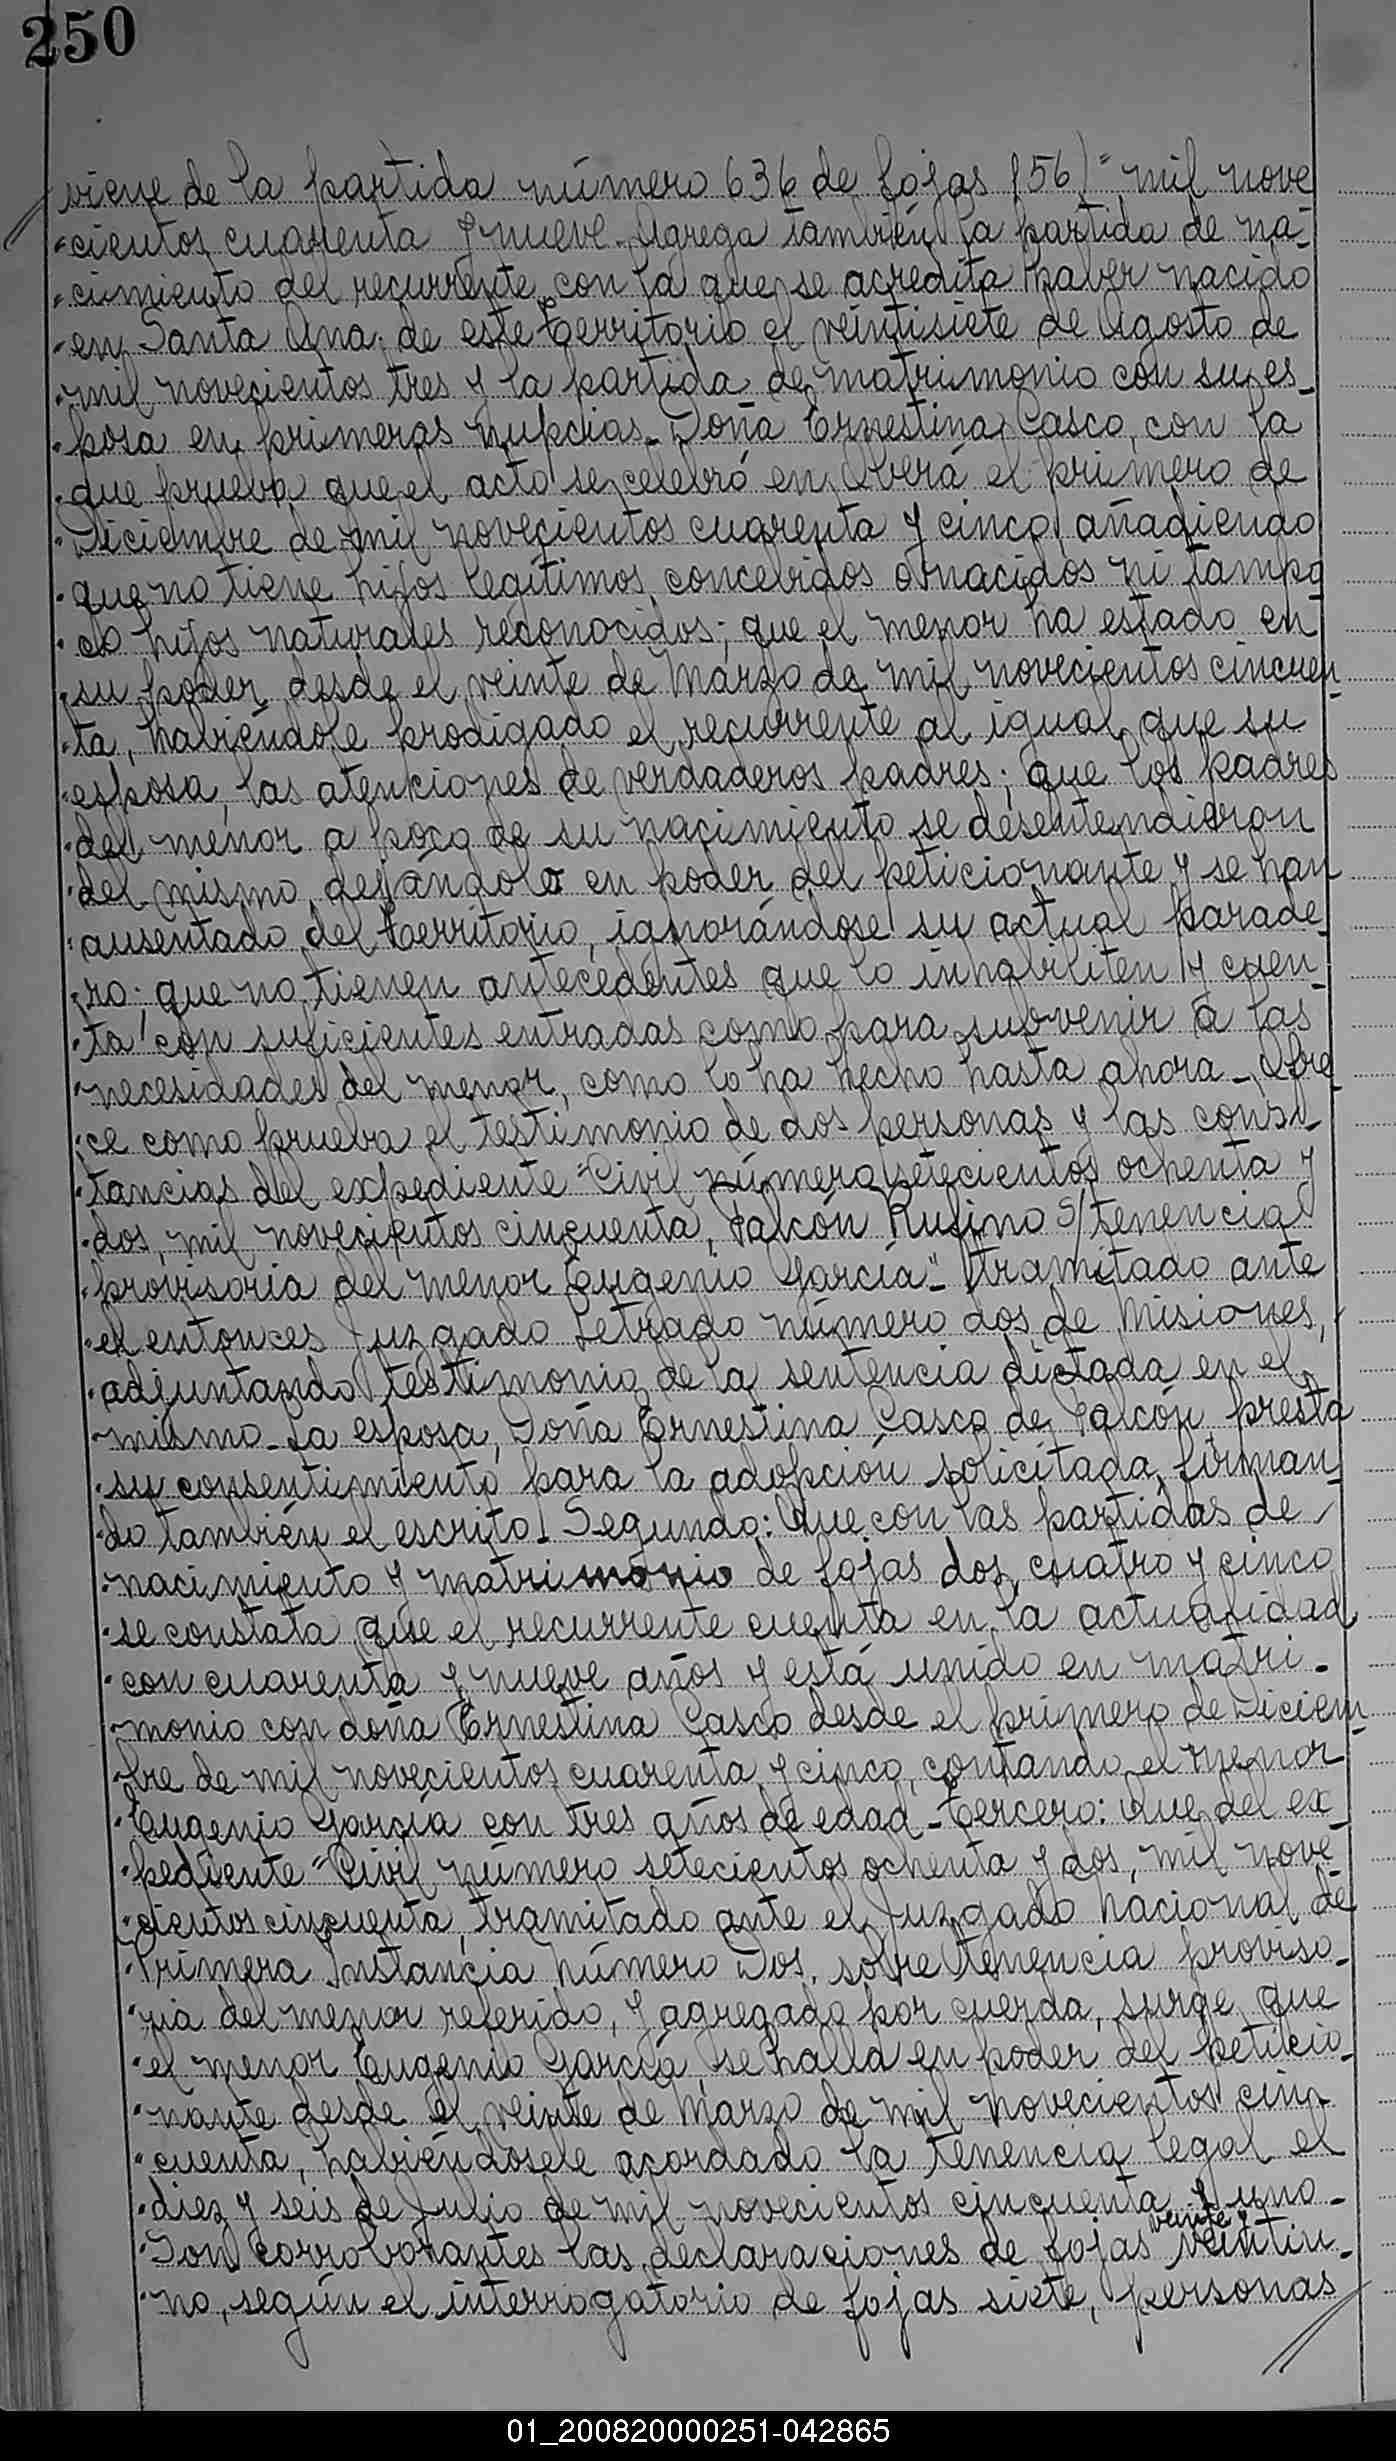 250
viene de la partida número 636 de fojas 156)" mil nove
"cientos cuarenta y nueve. Agrega también la partida de na-
"cimiento del recurrente, con la que se acredita haber nacido
"en Santa Ana de este Territorio el veintisiete de Agosto de
"mil novecientos tres y la partida de matrimonio con su es-
"posa en primeras nupcias Doña Ernestina Casco, con la
"que prueba que el acto se celebró en Oberá el primero de
"Diciembre de mil novecientos cuarenta y cinco, añadiendo
"que no tiene hijos legítimos, concebidos o nacidos ni tampo
"co hijos naturales reconocidos; que el menor ha estado en
"su poder desde el veinte de Marzo de mil novecientos cincuen-
"ta, habiéndole prodigado el recurrente al igual que su
"esposa, las atenciones de verdaderos padres; que los padres
"del menor a poco de su nacimiento se desentendieron
"del mismo, dejándolo en poder del peticionante y se han
"ausentado del Territorio, ignorándose su actual parade-
"ro; que no tienen antecedentes que lo inhabiliten y cuen-
"ta con suficientes entradas como para subvenir a las
"necesidades del menor, como lo ha hecho hasta ahora - Ofre-
"ce como prueba el testimonio de dos personas y las cons-
"tancias del expediente "Civil número setecientos ochenta y
"dos, mil novecientos cincuenta, Falcón Rufino S/ tenencia
"provisoria del menor Eugenio García"- tramitado ante
"el entonces Juzgado Letrado número dos de Misiones,
"adjuntando testimonio de la sentencia dictada en el
"mismo - La esposa, Doña Ernestina Casco de Falcón, presta
"su consentimiento para la adopción solicitada, firman-
"do también el escrito - Segundo: Que con las partidas de
"nacimiento y matrimonio de fojas dos, cuatro y cinco
"se constata que el recurrente cuenta en la actualidad
"con cuarenta y nueve años y está unido en matri-
"monio con doña Ernestina Casco desde el primero de Diciem-
"bre de mil novecientos cuarenta y cinco, contando el menor
"Eugenio García con tres años de edad - Tercero: Que del ex-
"pediente "Civil número setecientos ochenta y dos, mil nove-
"cientos cincuenta, tramitado ante el Juzgado Nacional de
"Primera Instancia Número Dos, sobre tenencia proviso-
"ria del menor referido, y agregado por cuerda, surge que
"el menor Eugenio García, se halla en poder del peticio-
"nante desde el veinte de Marzo de mil novecientos cin-
"cuenta, habiéndosele acordado la tenencia legal el
"diez y seis de Julio de mil novecientos cincuenta y uno -
veinte y
"Son corroborantes las declaraciones de fojas veintiu-
"no, según el interrogatorio de fojas siete, personas
01_200820000251-042865